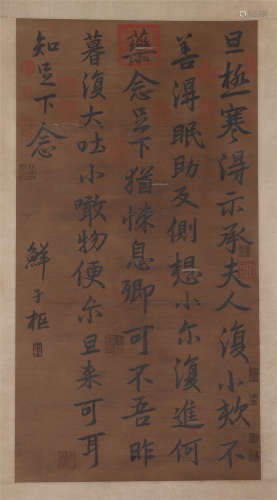 旦極寒得示承夫人復小欬不
善得眠助反側想小尔復進何
藥念足下猶悚息卿可不吾昨
暮復大吐小噉物便尓旦来可耳
知足下念
鮮于樞